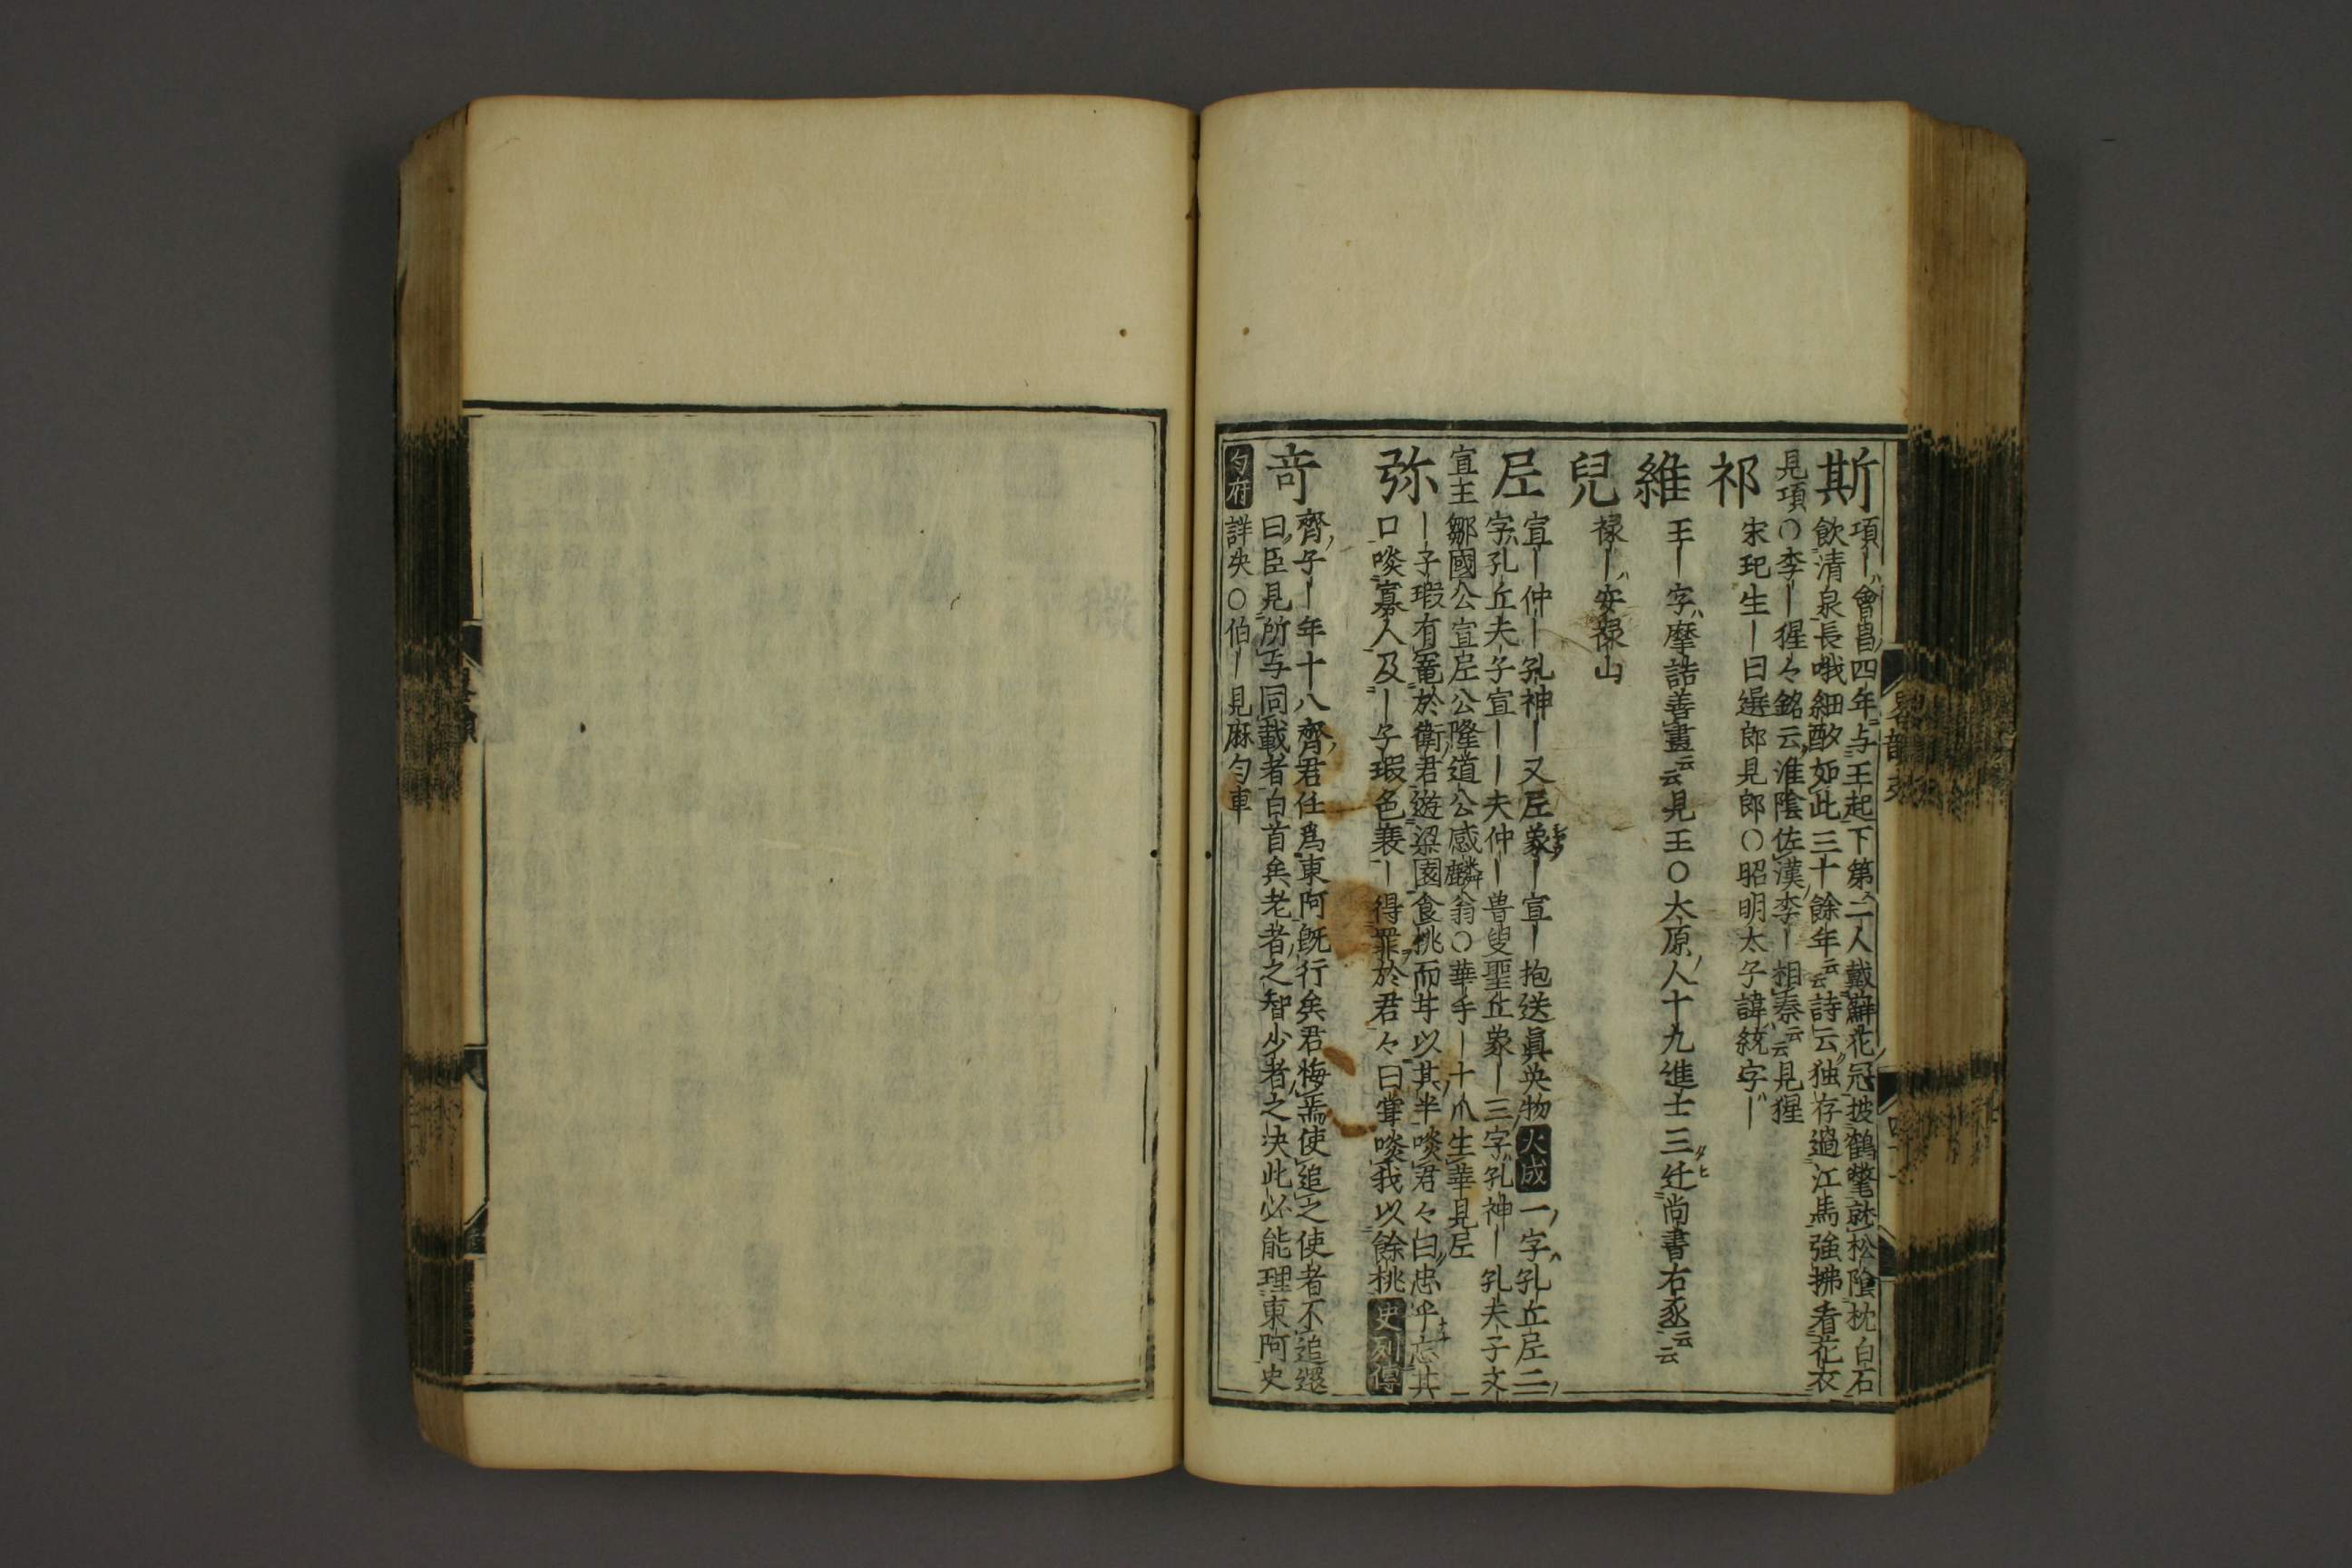 斯
項｜會昌四年与王起下第二人戴蘚花冠披鶴氅就松陰枕白石
飲清泉長哦細酌如此三十餘年云云詩云独存過江馬強拂看花衣
見項〇李｜猩々銘云淮陰佐漢李｜相秦云云見猩
祁
宋玘生｜曰選郎見郎〇昭明太子諱統字｜
維
王｜字摩詰善畫云云見王〇大原人十九進士三迁尚書右丞云云
兒
祿｜安祿山
𡰱
宣｜仲｜孔神｜又𡰱蒙｜宣｜抱送眞英物大成一字孔丘𡰱二
字孔丘夫子宣｜｜夫仲｜曽叟聖丘蒙｜三字孔神｜孔夫子文
宣王鄒國公宣𡰱公隆道公感麟翁〇華手｜十爪生華見𡰱
弥
｜子瑕有寵於衛君遊梁園食桃而甘以其半啖君々曰忠乎忘其
口啖寡人及｜子瑕色衰｜得罪於君々曰甞啖我以餘桃史列傳
竒
齊子｜年十八齊君任爲東阿既行矣君悔焉使追之使者不追還
曰臣見所与同載者白首矣老者之智少者之决此必能理東阿史
匀府詳失〇伯｜見麻匀車